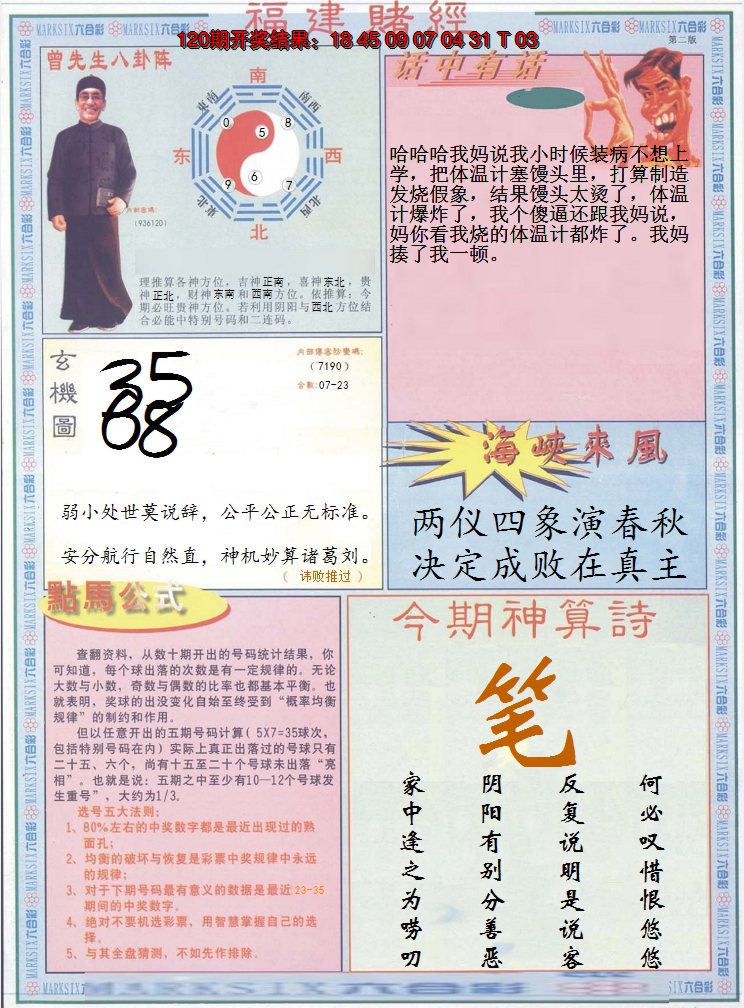 福建賭經
120期开奖结果：18 45 09 07 04 31 T 03
第二版
MARKSIX六合彩
曾先生八卦阵
南
东南
南西
0
8
5
东
西
6
9
7
东北
北西
北
内部密碼:
(936120)
理推算各神方位，吉神正南，喜神东北，贵
神正北，财神东南和西南方位。依推算：今
期必旺贵神方位。若利用阴阳与西北方位结
合必能中特别号码和二连码。
话中有话
哈哈哈我妈说我小时候装病不想上
学，把体温计塞馒头里，打算制造
发烧假象，结果馒头太烫了，体温
计爆炸了，我个傻逼还跟我妈说，
妈你看我烧的体温计都炸了。我妈
揍了我一顿。
玄機圖
35
68
内部傳密防變碼:
(7190)
合数:07-23
弱小处世莫说辞，公平公正无标准。
安分航行自然直，神机妙算诸葛刘。
（ 讳败推过 ）
海峽來風
两仪四象演春秋
决定成败在真主
點馬公式
查翻资料，从数十期开出的号码统计结果，你
可知道，每个球出落的次数是有一定规律的。无论
大数与小数，奇数与偶数的比率也都基本平衡。也
就表明，奖球的出没变化自始至终受到“概率均衡
规律”的制约和作用。
但以任意开出的五期号码计算( 5X7=35球次，
包括特别号码在内) 实际上真正出落过的号球只有
二十五、六个，尚有十五至二十个号球未出落“亮
相”。也就是说：五期之中至少有10—12个号球发
生重号”，大约为1/3。
选号五大法则:
1、80%左右的中奖数字都是最近出现过的熟
面孔;
2、均衡的破坏与恢复是彩票中奖规律中永远
的规律;
3、对于下期号码最有意义的数据是最近23-35
期间的中奖数字。
4、绝对不要机选彩票，用智慧掌握自己的选
择。
5、与其全盘猜测，不如先作排除。
今期神算詩
笔
家中逢之为唠叨
阴阳有别分善恶
反复说明是说客
何必叹惜恨悠悠
MARKSIX六合彩